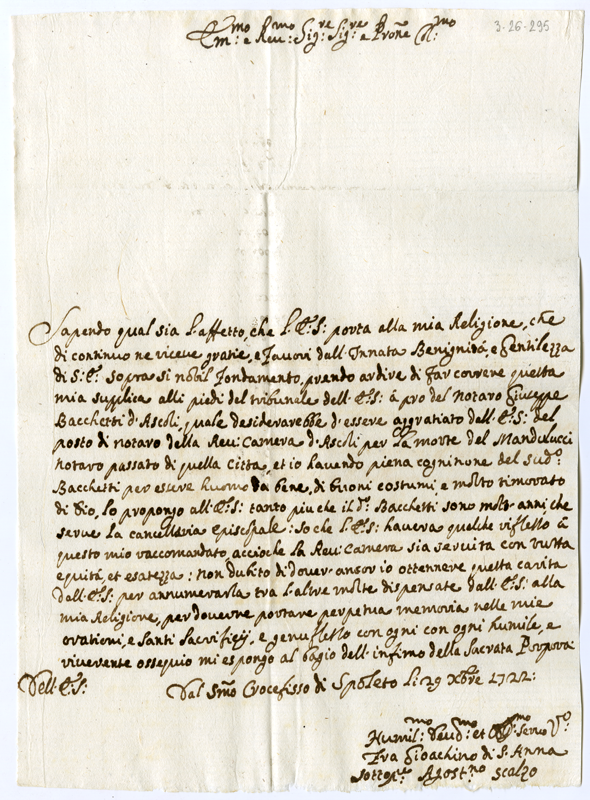 Em:mo e Reu:mo Sig:re Sig:re e Prone Col:mo
3-26-295
Sapendo qual sia l'affetto, che l'E:S: porta alla mia Religione, che
di continuo ne riceue gratie, e fauori dall'Innata Benignità, e Gentilezza
di S:E: sopra si nobil fondamento, prendo ardire di far correre questa
mia suplica alli piedi del tribunale dell'E:S: à pro del notaro Giuseppe
Bacchetti d'Ascoli, quale desiderarebbe d'essere aggratiato dell'E:S: del
posto di notaro della Reu: Camera d'Ascoli per la morte del Mandulucci
notaro passato di quella Città, et io hauendo piena cognitione del sud:o
Bacchetti per essere huomo da bene, di buoni costumi, e molto timorato
di Dio, lo propongo all'E:S: tanto più che il d:o Bacchetti sono molt'anni che
serue la cancellaria episcopale: so che l'E:S: hauerà qualche riflesso à
questo mio raccomandato, acciochè la Reu: Camera sia seruita con tutta
equità, et esatezza: non dubito di douer ancor io ottennere questa carità
dall'E:S: per annumerarla tra l'altre molte dispensate dall'E:S: alla
mia Religione, per douerne portare perpetua memoria nelle mie
orationi, e Santi Sacrifitij, e genuflesso con ogni con ogni humile, e
riuerente ossequio mi espongo al bagio dell'infimo della Sacrata Porpora
Dell'E:S: Dal S:mo Crocefisso di Spoleto li: 29 Xbre 1722:
Humil:mo Deud:mo et Obb:mo seruo V:o
Fra Gioachino di S. Anna
Agost:no Scalzo